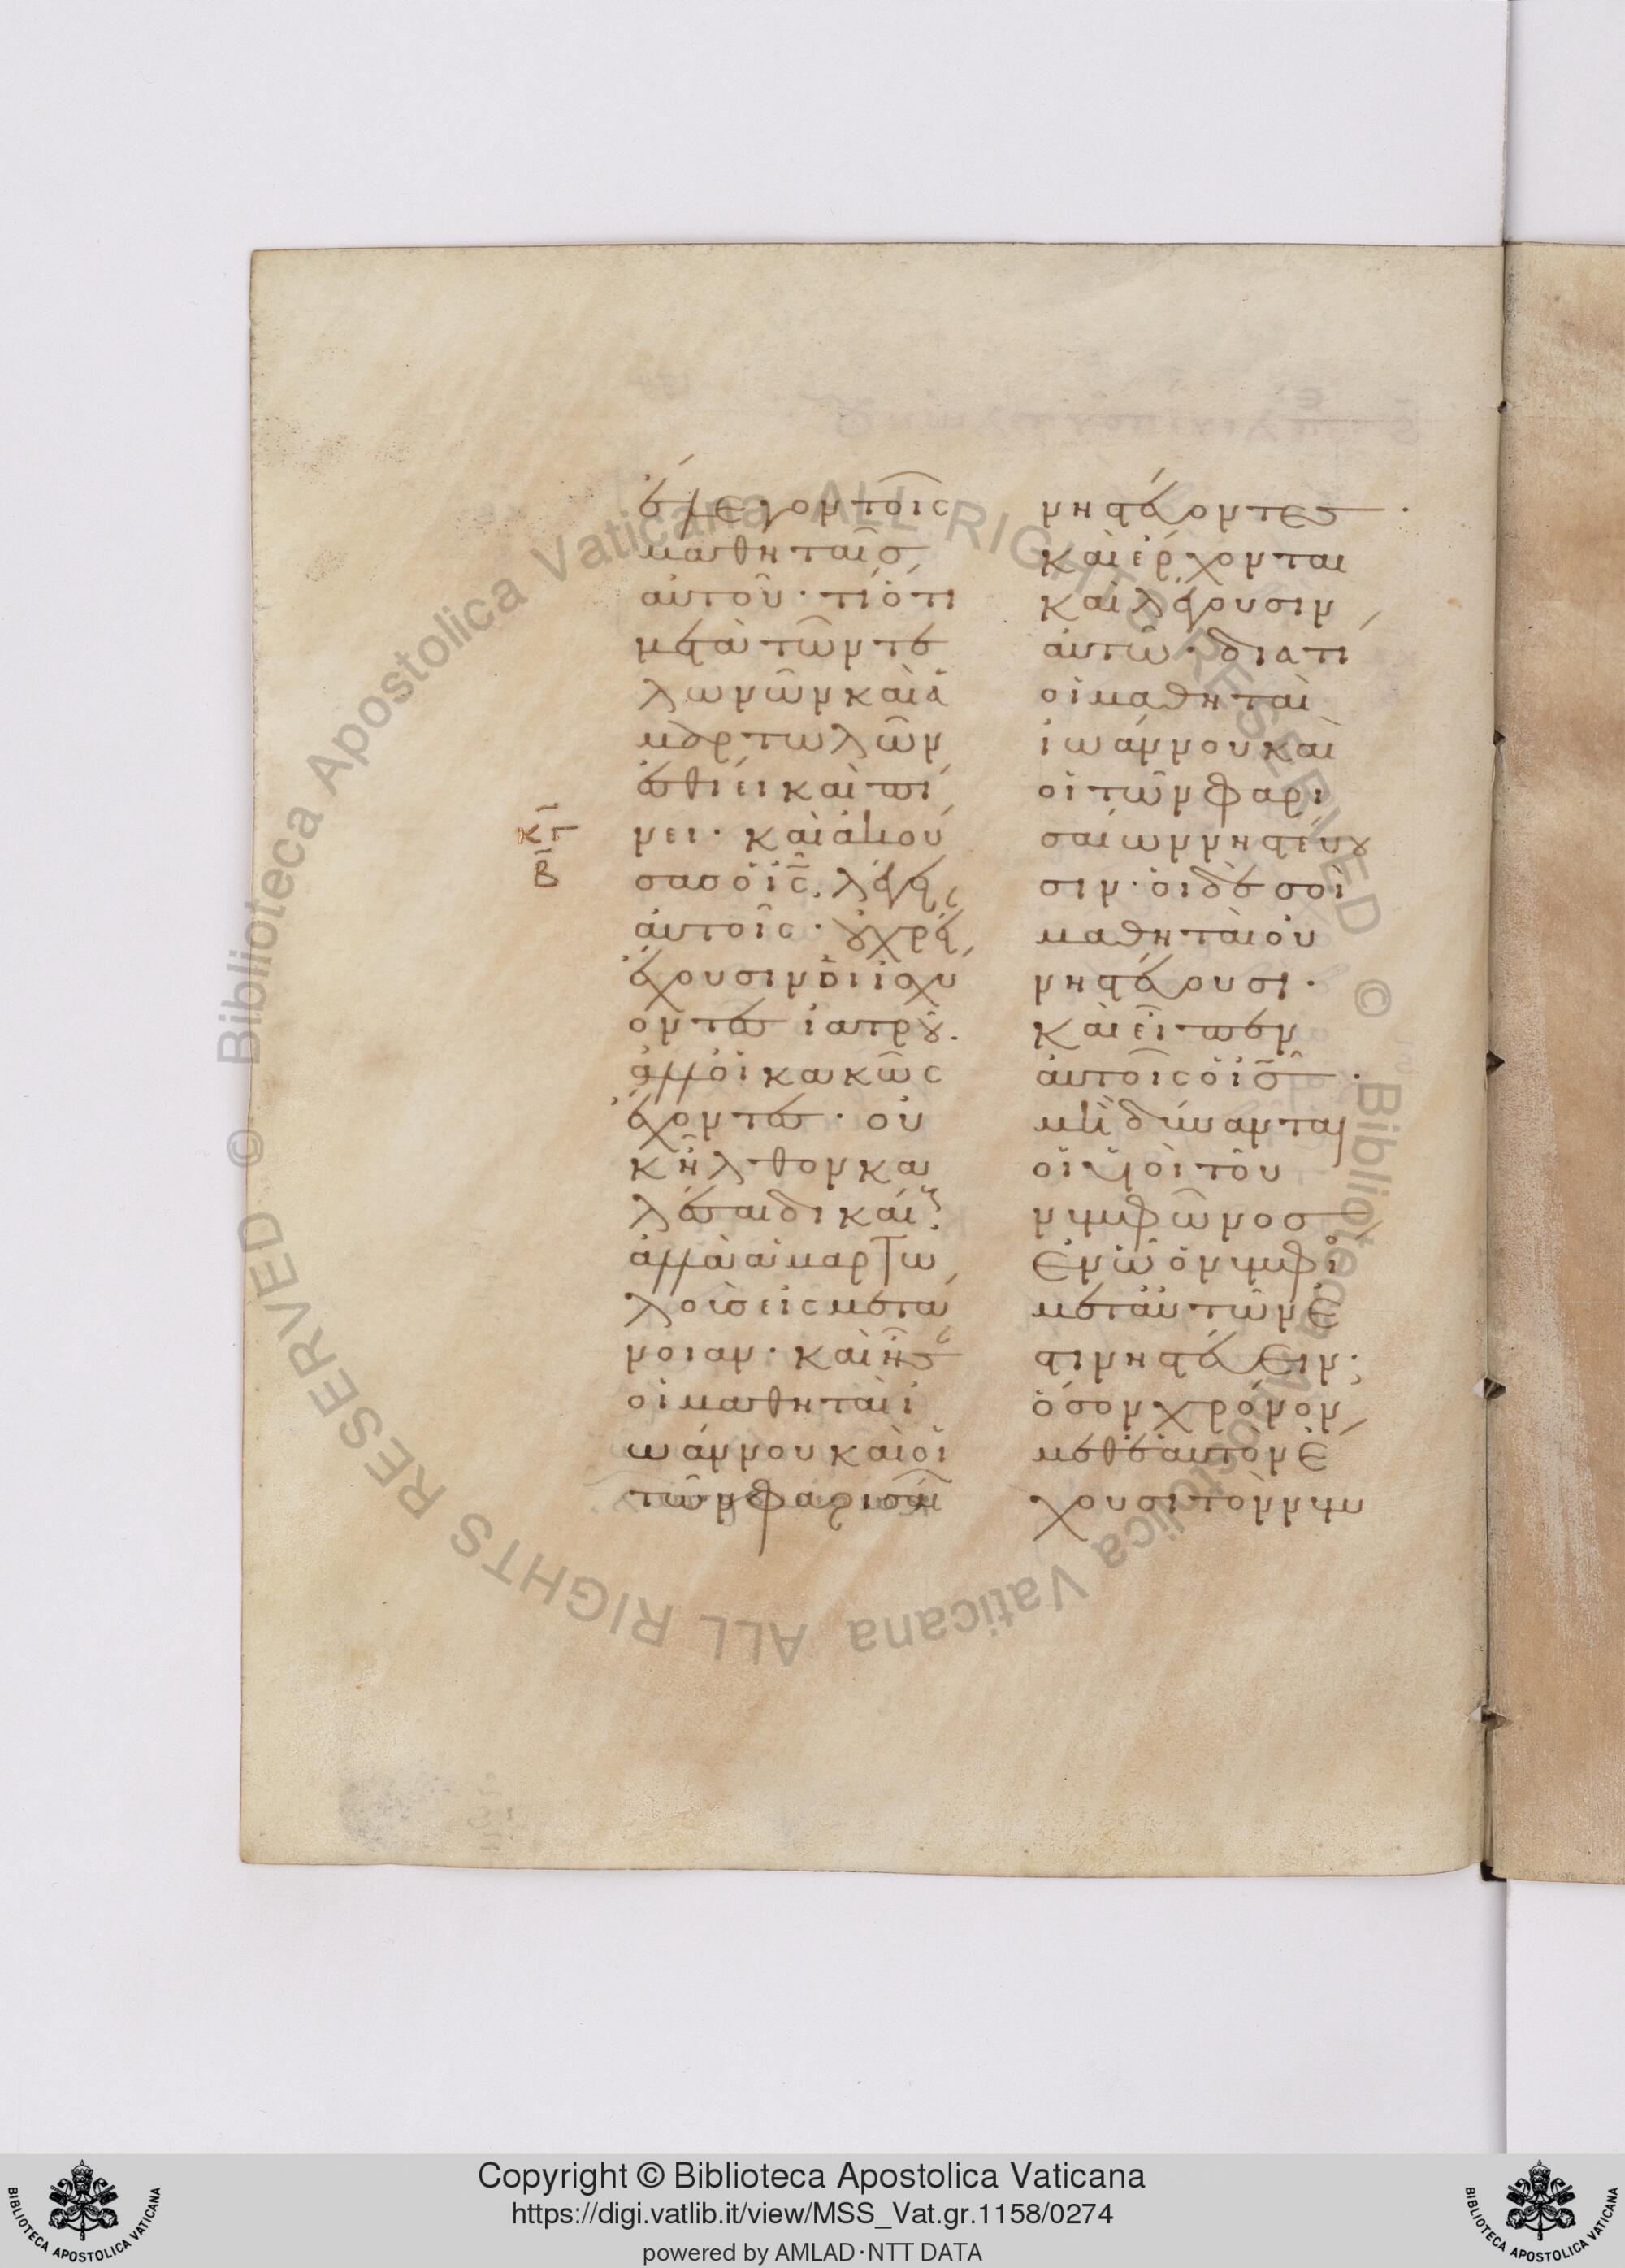 ἔλεγον τοῖς
μαθηταῖς
αὐτοῦ· τί ὅτι
μετὰ τῶν τε
λωνῶν καὶ ἁ
μαρτωλῶν
ἐσθίει καὶ πί
νει· καὶ ἀκού
σας ὁ ις̅ λέγει
αὐτοῖς· οὐ χρεί
αν ἔχουσιν οἱ ἰσχύ
οντες ἰατροῦ.
ἀλλ' οἱ κακῶς
ἔχοντες· οὐ
κ ἦλθον κα
λέσαι δικαίους
ἀλλὰ ἁμαρτω
λοὺς εἰς μετά
νοιαν· καὶ ἦσαν
οἱ μαθηταὶ ἰ
ωάννου καὶ οἱ
τῶν φαρισαί
κγ̅
β̅
νηστεύοντες·
καὶ ἔρχονται
καὶ λέγουσιν
αὐτῶ· διατί
οἱ μαθηταὶ
ἰωάννου καὶ
οἱ τῶν φαρι
σαίων νηστεύου
σιν· οἱ δὲ σοὶ
μαθηταὶ οὐ
νηστεύουσι·
καὶ εἶπεν
αὐτοῖς ὁ ις̅·
μὴ δύνανται
οἱ υἱοὶ τοῦ
νυμφῶνος
ἐν ᾧ ὁ νυμφίος
μετ' αὐτῶν ἐ
στι νηστεύειν;
ὅσον χρόνον
μεθ' ἑαυτῶν ἔ
χουσι τὸν νυμ
Copyright © Biblioteca Apostolica Vaticana
https://digi.vatlib.it/view/MSS_Vat.gr.1158/0274
powered by AMLAD·NTT DATA
BIBLIOTECA APOSTOLICA VATICANA
BIBLIOTECA APOSTOLICA VATICANA
© Biblioteca Apostolica Vaticana ALL RIGHTS RESERVED © Biblioteca Apostolica Vaticana ALL RIGHTS RESERVED